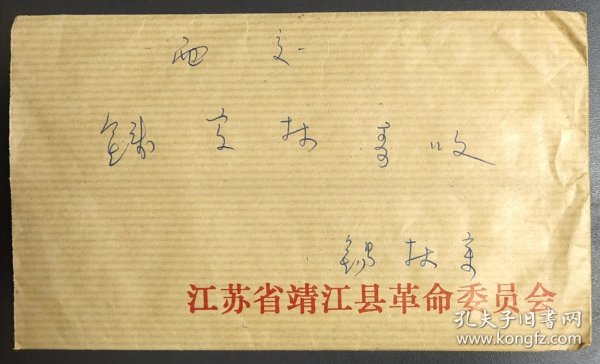 面交
钱 林 收
锡林
江苏省靖江县革命委员会
孔夫子旧书网
www.kongfz.com